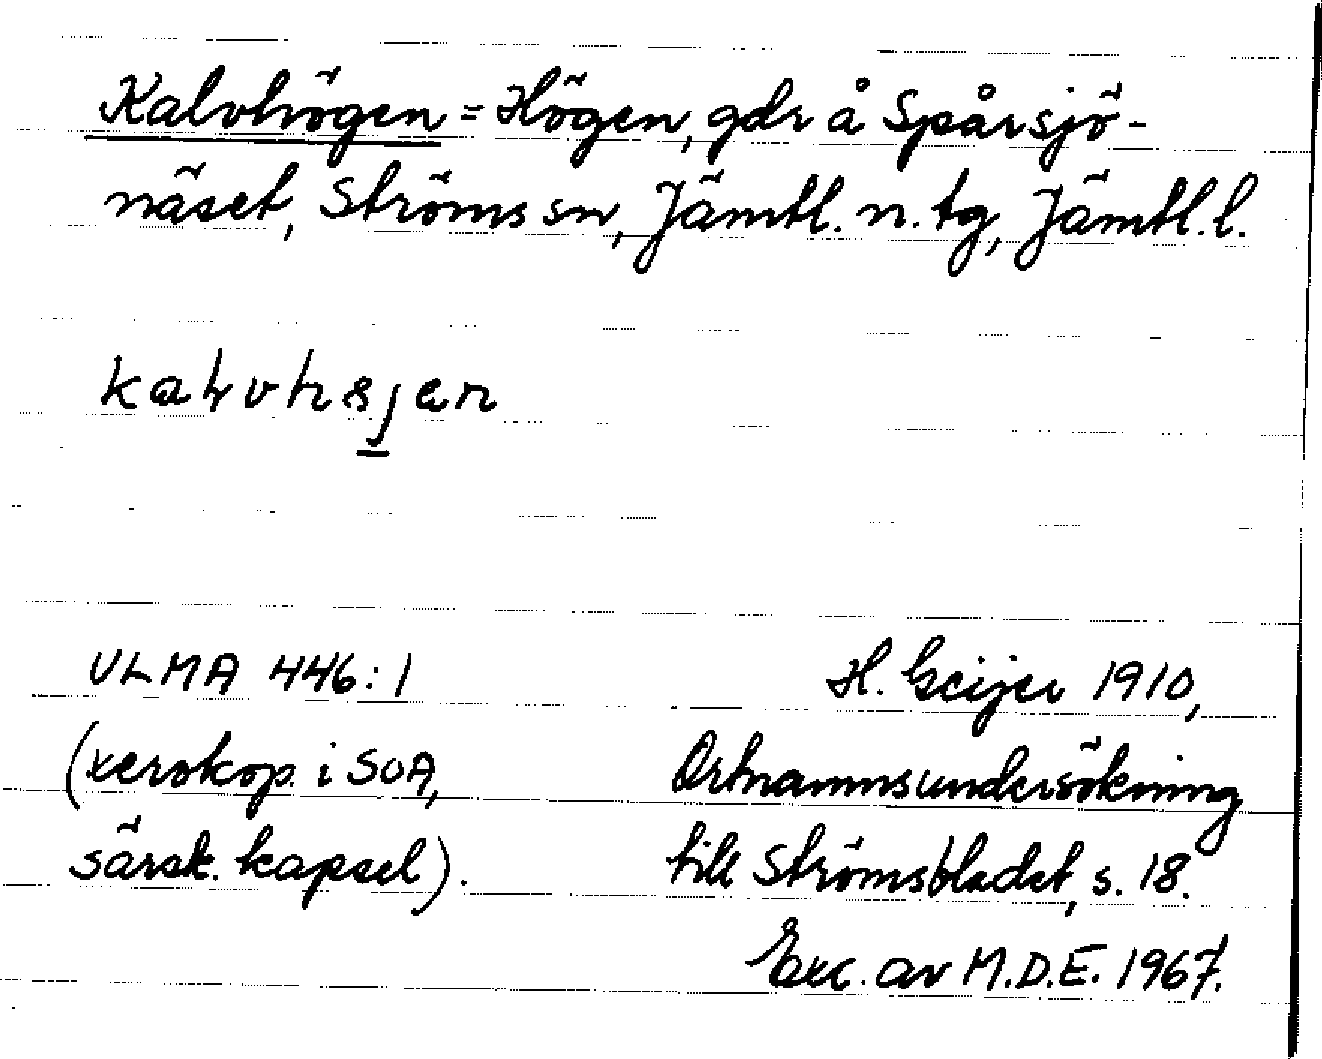 Kalvhögen = Högen, gdr å Spårsjö-
näset, Ströms sn, Jämtl. n. tg, Jämtl. l.
ULMA 446:1
(xerokop. i SOA,
särsk. kapsel).
H. Geijer 1910,
Ortnamnsundersökning
till Strömsbladet, s. 18.
Exc. av M.D.E. 1967.